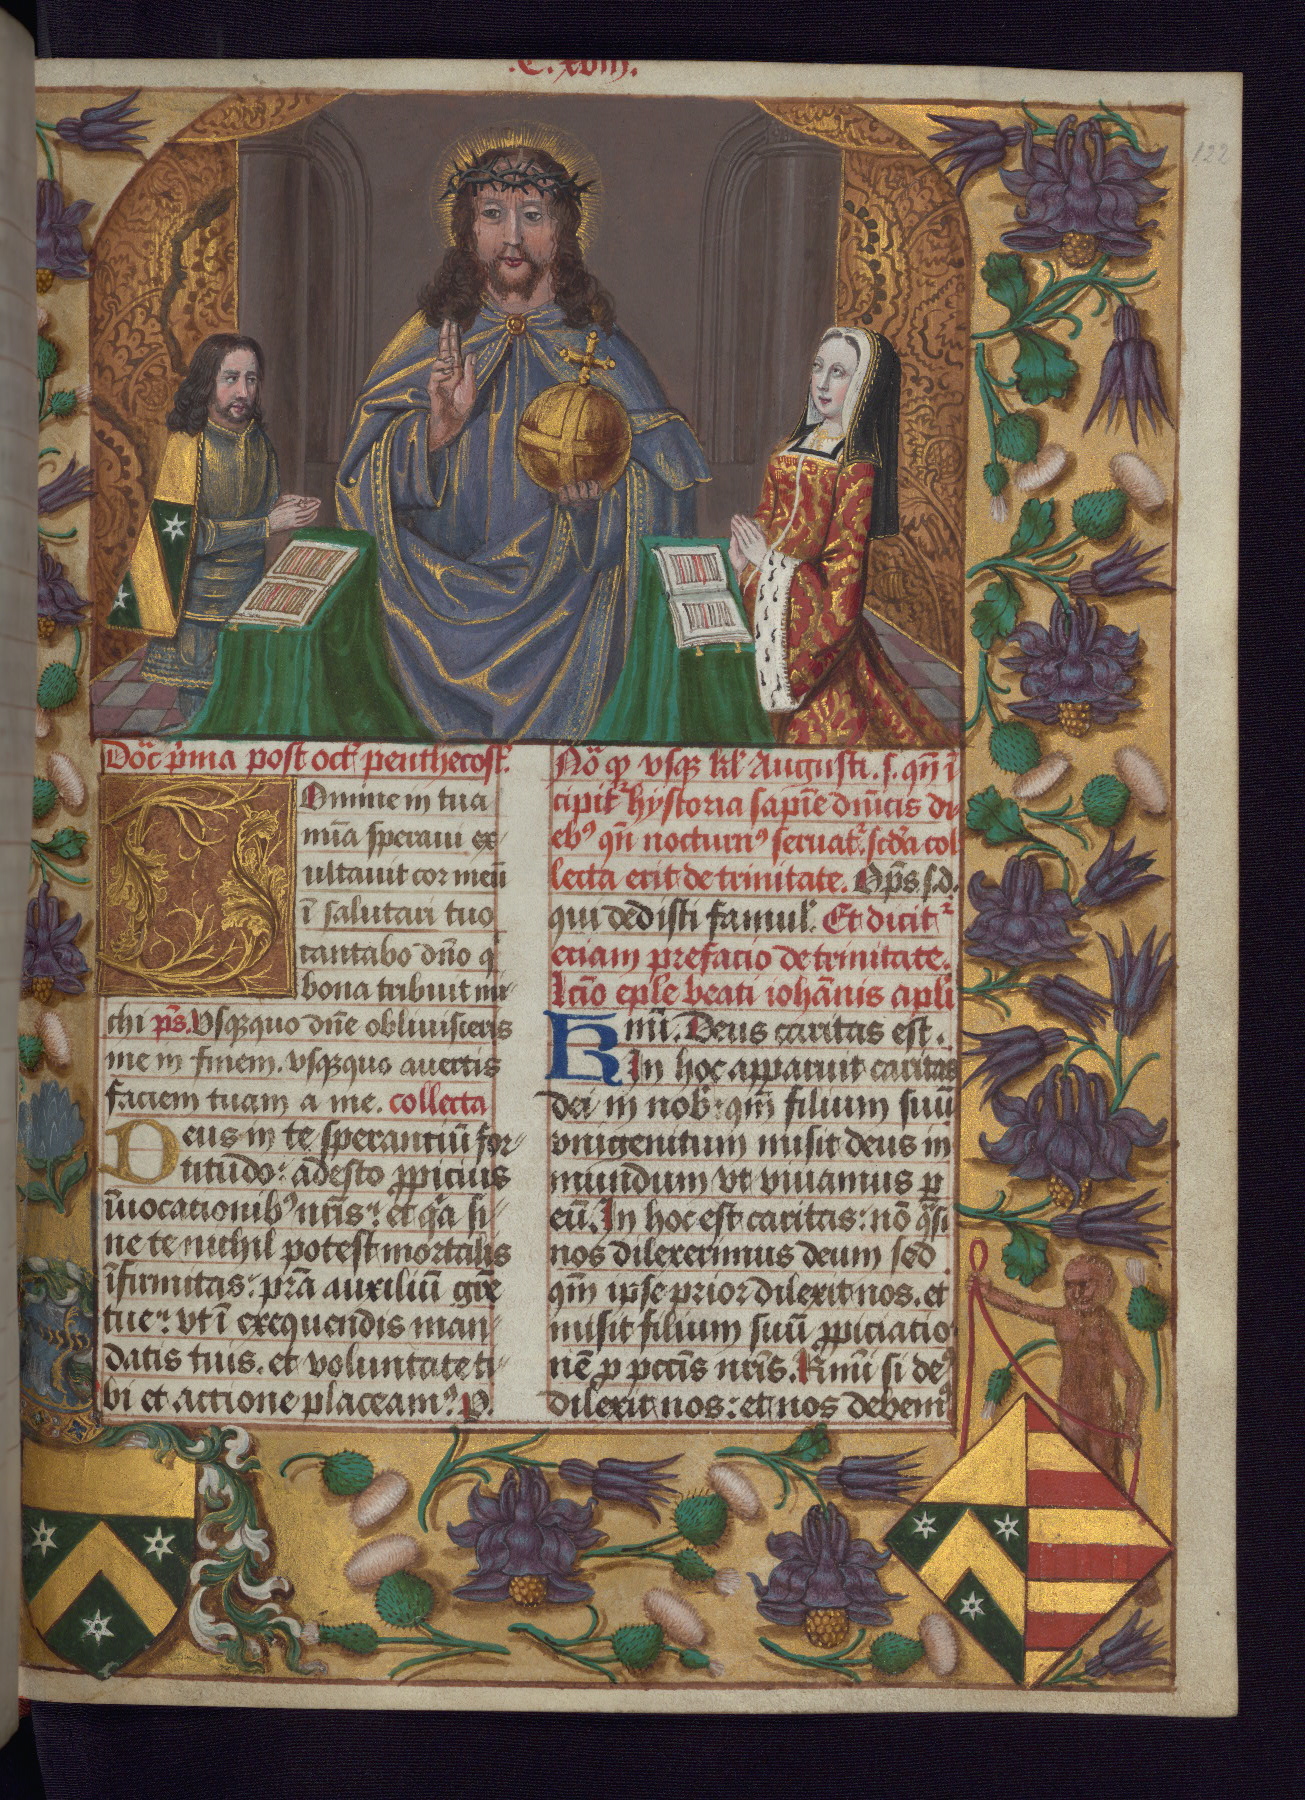 .C.xviii.
122
Dn̄c p̄ma post oct̄ penthecost̄.
Domine in tua
mīa speraui ex-
ultauit cor meū
ī salutari tuo
cantabo dn̄o q'
bona tribuit mi-
chi p̄s. Vsq̨quo dn̄e obliuisceris
me in finem. vsq̨quo auertis
faciem tuam a me. collecta
Deus in te sperantiū for-
titudo: adesto ꝓpicius
īuocationibꝰ nr̄is: et q̄a si-
ne te nichil potest mortalis
īfirmitas: pr̄a auxiliū gr̄e
tue: vt ī exequendis man-
datis tuis. et voluntate ti-
bi et actione placeamꝰ. P.
Nō qꝫ vsqꝫ kl' Augusti. s. qn̄ ī
cipit' hystoria sapīe dn̄icis di-
ebꝰ qn̄ nocturnꝰ seruat'. scd̄a col
lecta erit de trinitate. Op̄s s. d.
qui dedisti famul'. Et dicit'
eciam prefacio de trinitate.
Lcīo ep̄le beati iohānis apl̄i
Kmī. Deus caritas est.
In hoc apparuit caritas
dei in nob': qm̄ filium suū
vnigenitum misit deus in
mundum vt viuamus ꝑ
eū. In hoc est caritas: nō q̄si
nos dilexerimus deum sed
qm̄ ipse prior dilexit nos. et
misit filium suū ꝓpiciatio
nē ꝓ pcc̄is nr̄is. Kmī si deꝰ
dilexit nos: et nos debemꝰ